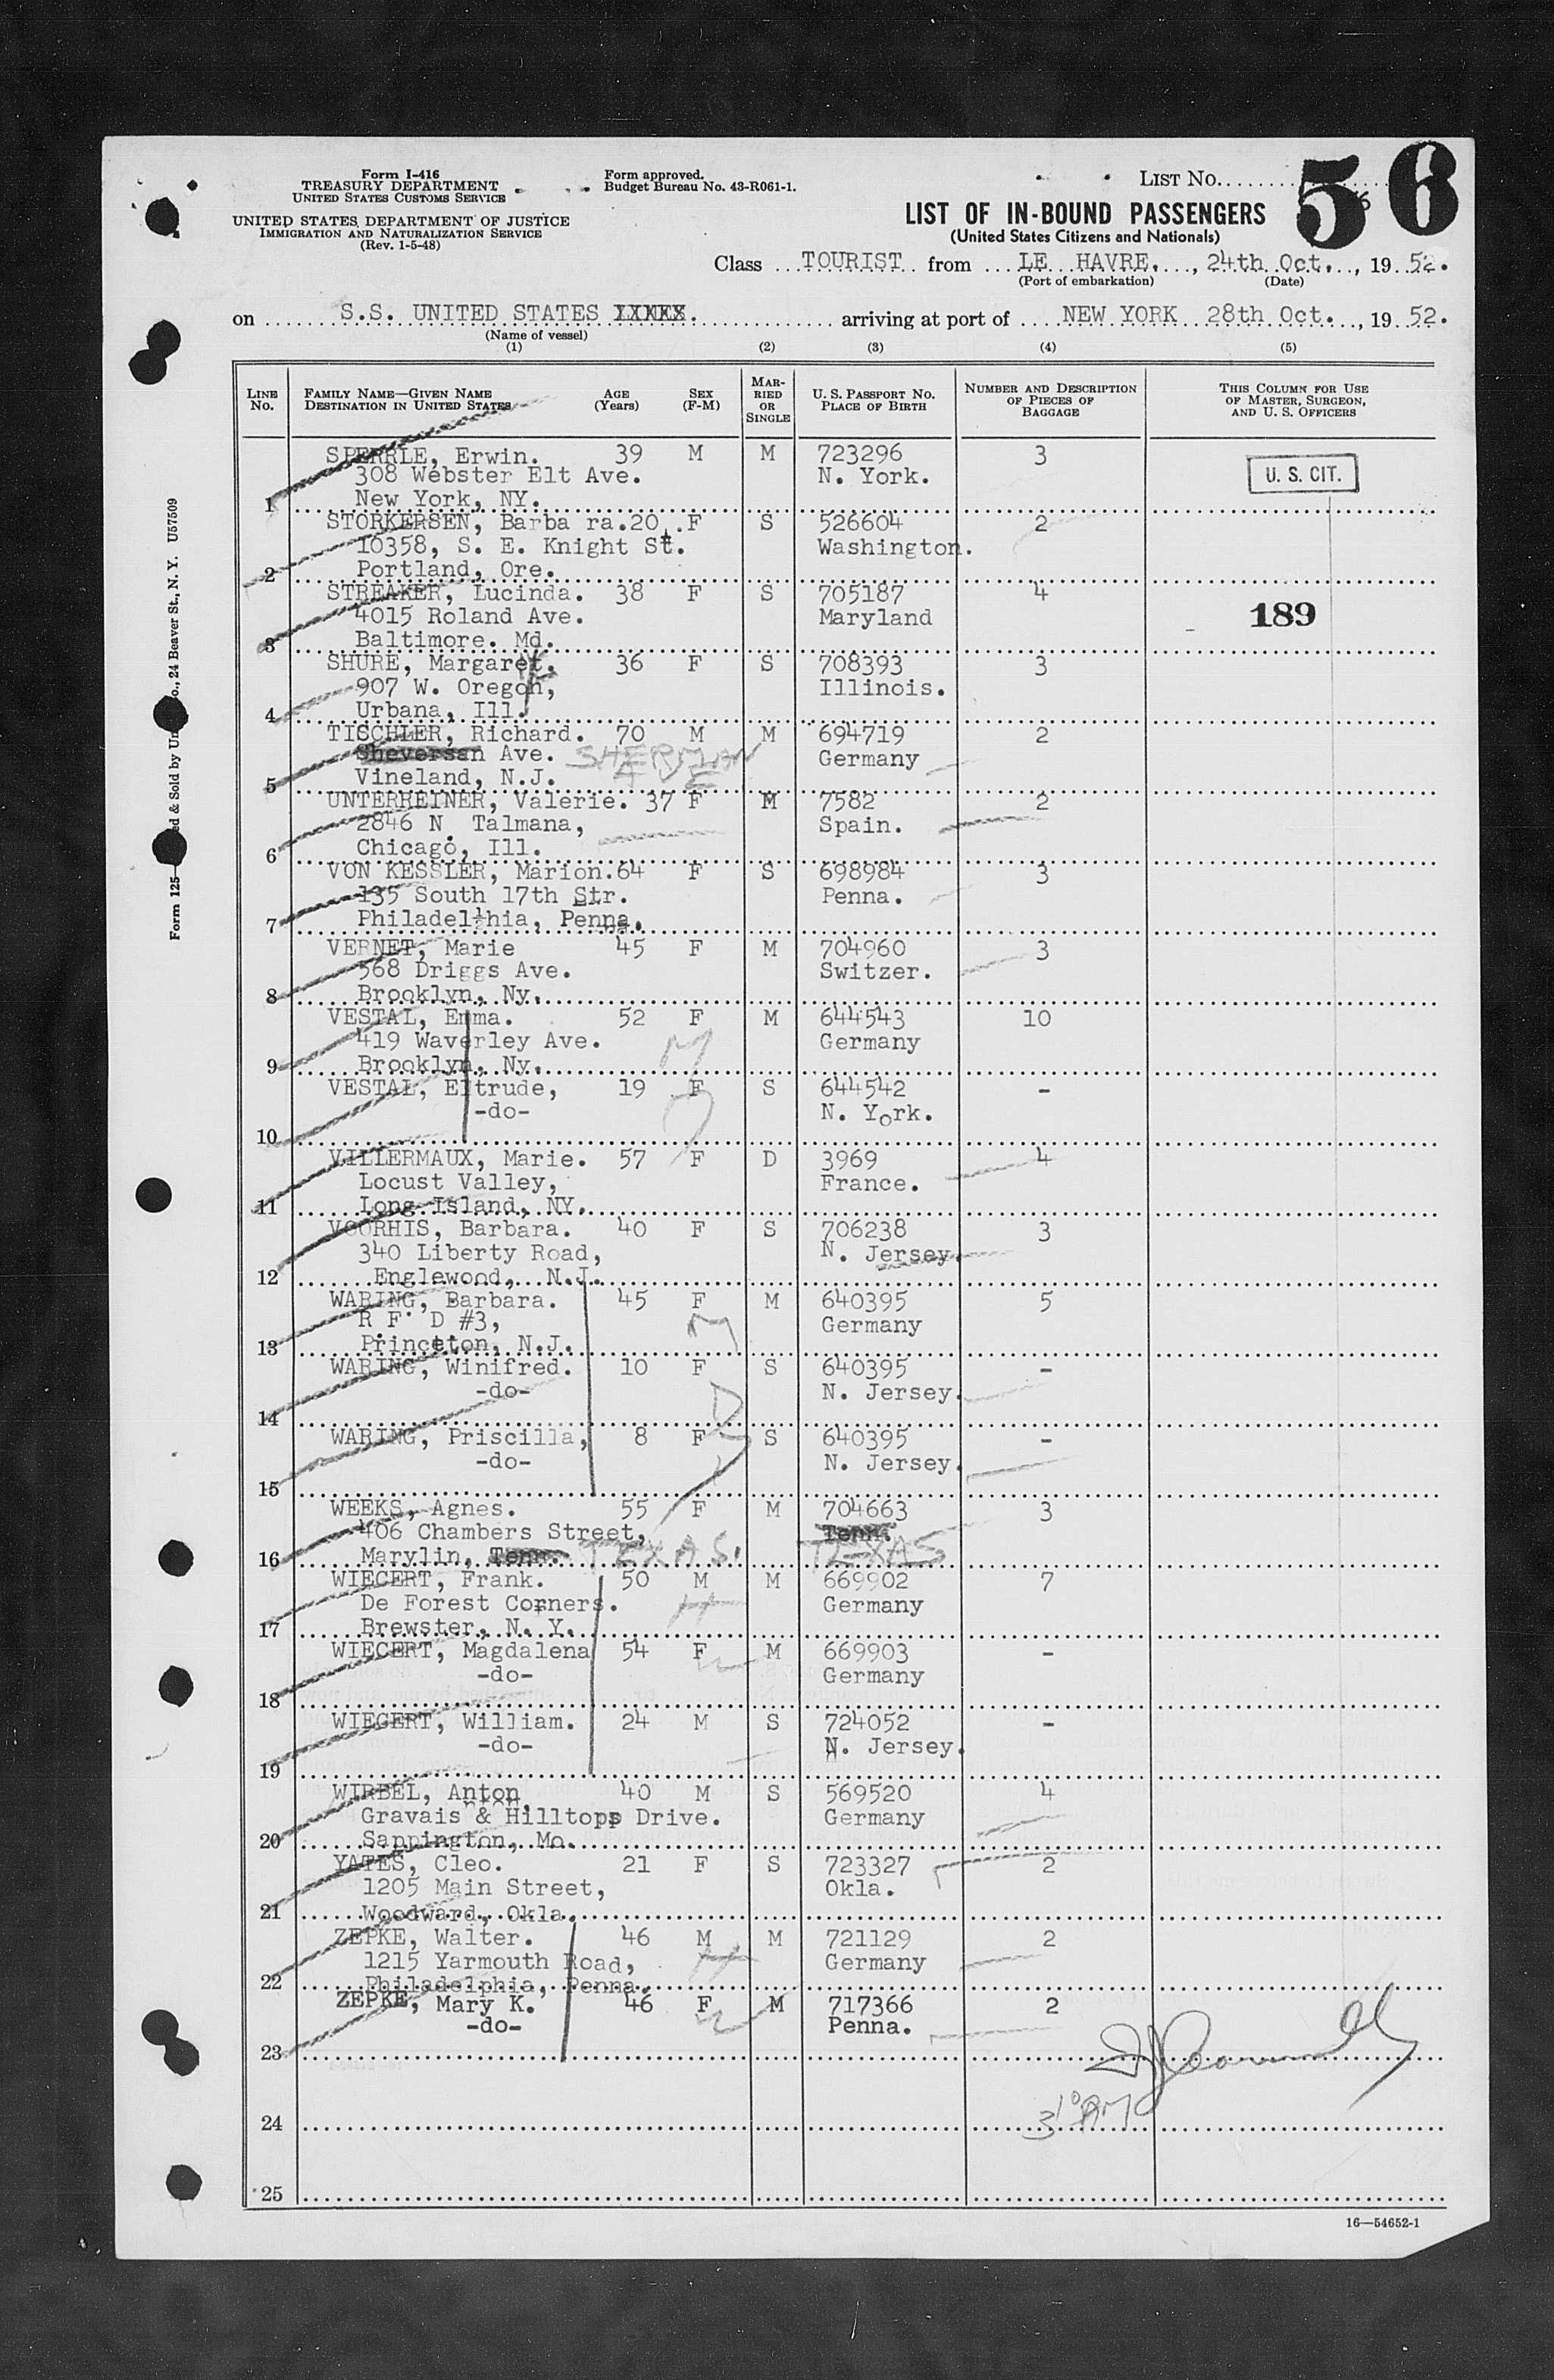 Form I-416
TREASURY DEPARTMENT
UNITED STATES CUSTOMS SERVICE
UNITED STATES DEPARTMENT OF JUSTICE
IMMIGRATION AND NATURALIZATION SERVICE
(Rev. 1-5-48)
Form approved.
Budget Bureau No. 43-R061-1.
LIST No. 56
LIST OF IN-BOUND PASSENGERS
(United States Citizens and Nationals)
Class TOURIST from LE HAVRE., 24th Oct., 1952.
(Port of embarkation) (Date)
on S.S. UNITED STATES arriving at port of NEW YORK 28th Oct., 1952.
(Name of vessel)
(1) (2) (3) (4) (5)
LINE No. FAMILY NAME—GIVEN NAME DESTINATION IN UNITED STATES AGE (Years) SEX (F-M) MARRIED OR SINGLE U. S. PASSPORT No. PLACE OF BIRTH NUMBER AND DESCRIPTION OF PIECES OF BAGGAGE THIS COLUMN FOR USE OF MASTER, SURGEON, AND U. S. OFFICERS
SPERRLE, Erwin. 39 M M 723296 3
308 Webster Elt Ave. N. York. U. S. CIT.
1 New York, NY.
STORKERSEN, Barba ra. 20 F S 526604 2
10358, S. E. Knight St. Washington.
2 Portland, Ore.
STREAKER, Lucinda. 38 F S 705187 4
4015 Roland Ave. Maryland 189
3 Baltimore. Md.
SHURE, Margaret, 36 F S 708393 3
907 W. Oregon, Illinois.
4 Urbana, Ill.
TISCHLER, Richard. 70 M M 694719 2
Sheversan Ave. SHERMAN AVE Germany
5 Vineland, N.J.
UNTERREINER, Valerie. 37 F M 7582 2
2846 N. Talmana, Spain.
6 Chicago, Ill.
VON KESSLER, Marion. 64 F S 698984 3
135 South 17th Str. Penna.
7 Philadelphia, Penna.
VERNET, Marie 45 F M 704960 3
568 Driggs Ave. Switzer.
8 Brooklyn, Ny.
VESTAL, Emma. 52 F M 644543 10
419 Waverley Ave. M Germany
9 Brooklyn, Ny.
VESTAL, Eltrude, 19 F S 644542 -
-do- N. York.
10
VILLERMAUX, Marie. 57 F D 3969 4
Locust Valley, France.
11 Long Island, NY.
VOORHIS, Barbara. 40 F S 706238 3
340 Liberty Road, N. Jersey.
12 Englewood, N.J.
WARING, Barbara. 45 F M 640395 5
R F D #3, M Germany
13 Princeton, N.J.
WARING, Winifred. 10 F S 640395 -
-do- D N. Jersey.
14
WARING, Priscilla, 8 F S 640395 -
-do- N. Jersey.
15
WEEKS, Agnes. 55 F M 704663 3
406 Chambers Street, Tenn.
16 Marylin, Tenn. TEXAS. TEXAS
WIEGERT, Frank. 50 M M 669902 7
De Forest Corners. H Germany
17 Brewster, N. Y.
WIEGERT, Magdalena 54 F M 669903 -
-do- W Germany
18
WIEGERT, William. 24 M S 724052 -
-do- N. Jersey.
19
WIRBEL, Anton, 40 M S 569520 4
Gravais & Hilltops Drive. Germany
20 Sappington, Mo.
YATES, Cleo. 21 F S 723327 2
1205 Main Street, Okla.
21 Woodward, Okla.
ZEPKE, Walter. 46 M M 721129 2
1215 Yarmouth Road, H Germany
22 Philadelphia, Penna.
ZEPKE, Mary K. 46 F M 717366 2
-do- W Penna.
23
24 3 10 AM
25
16—54652-1
Form 125— & Sold by 24 Beaver St., N. Y. U57509